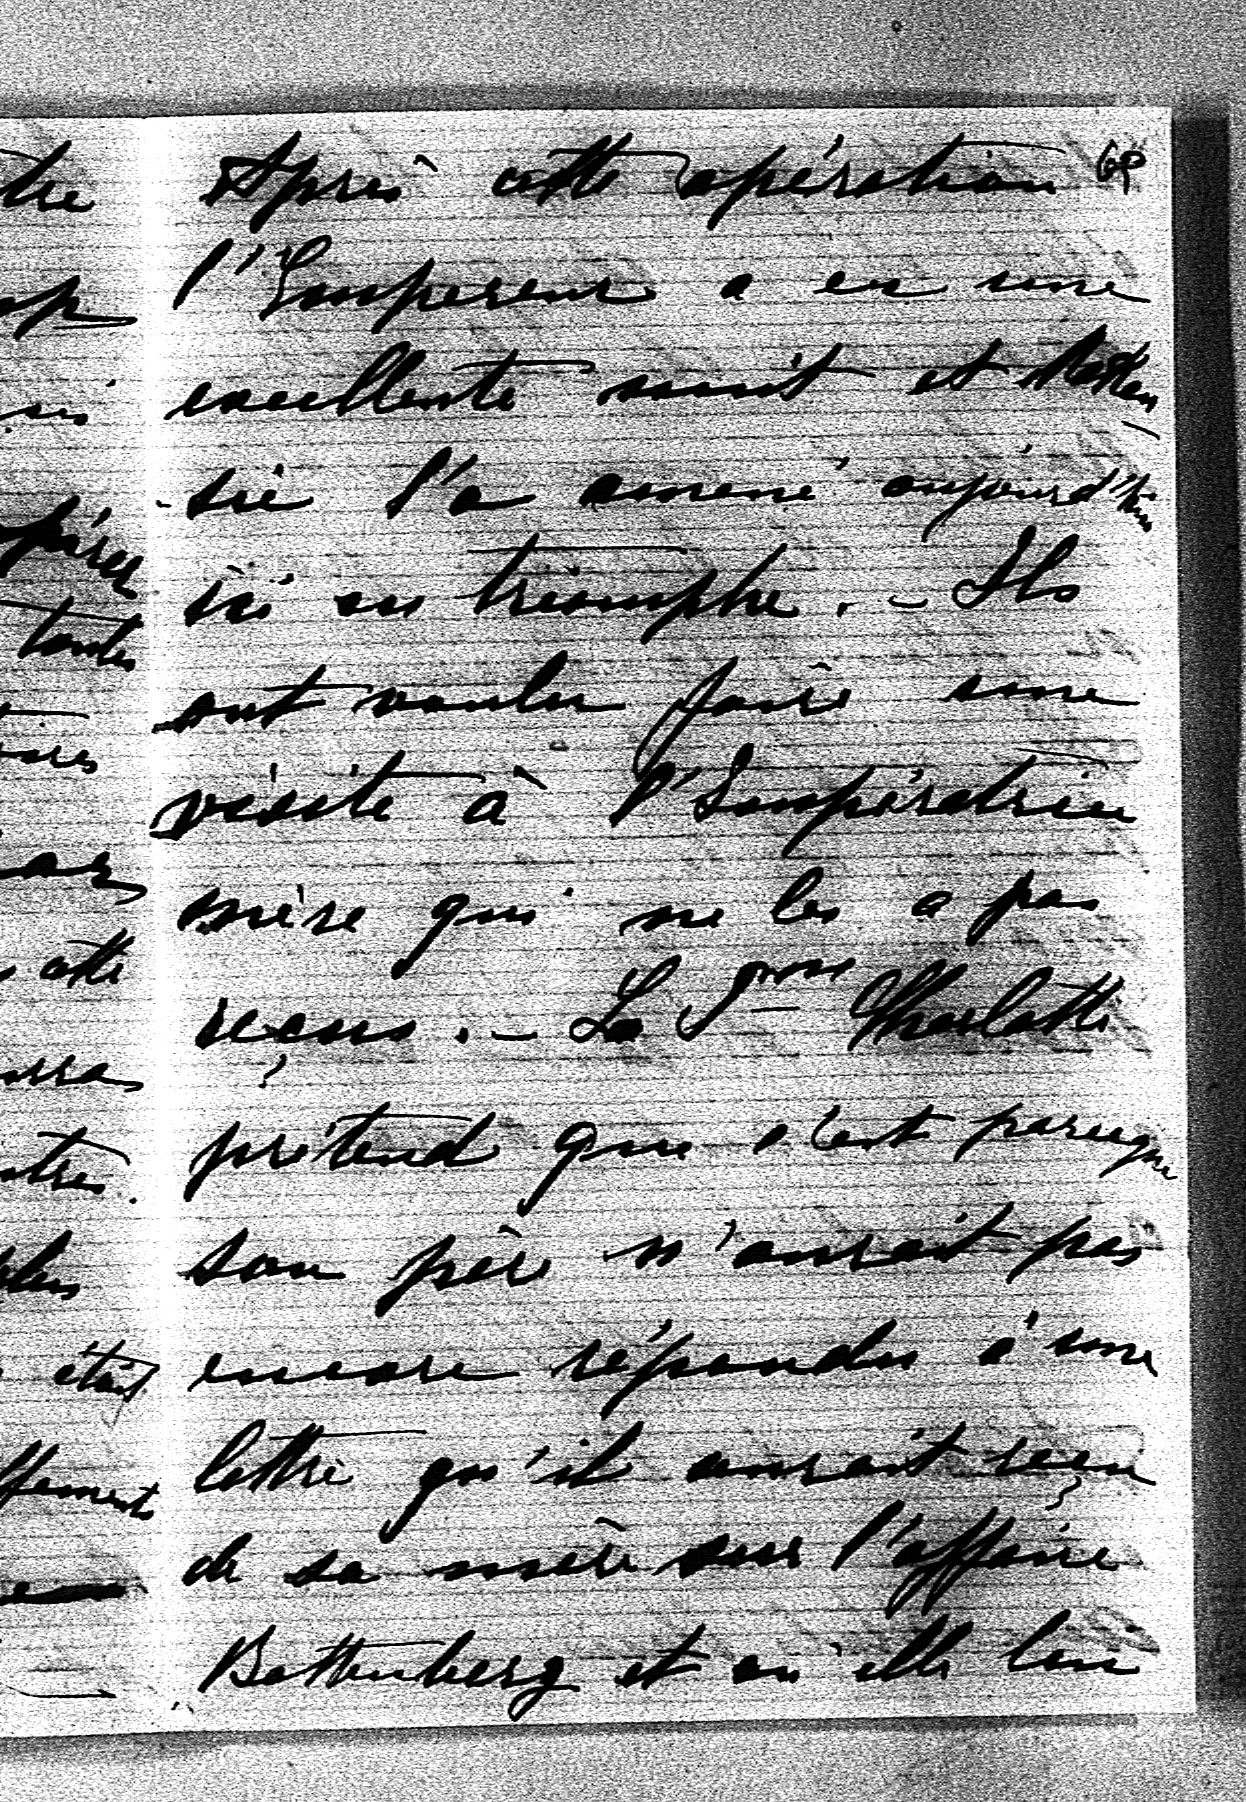 tre
ap
pérer
tantes
cette
ntres.
plus
était
Après cette opération 68
l'Empereur a eu une
excellente nuit et
l'a amené aujourd'hui
ici en triomphe. – Ils
ont voulu faire une
visite à l'Impératrice
mère qui ne les a pas
reçus. – La Psse Charlotte
prétend que c'est parceque
son père n'aurait pas
encore répondu à une
lettre qu'il aurait reçu
de sa mère sur l'affaire
Battenberg et où elle lui